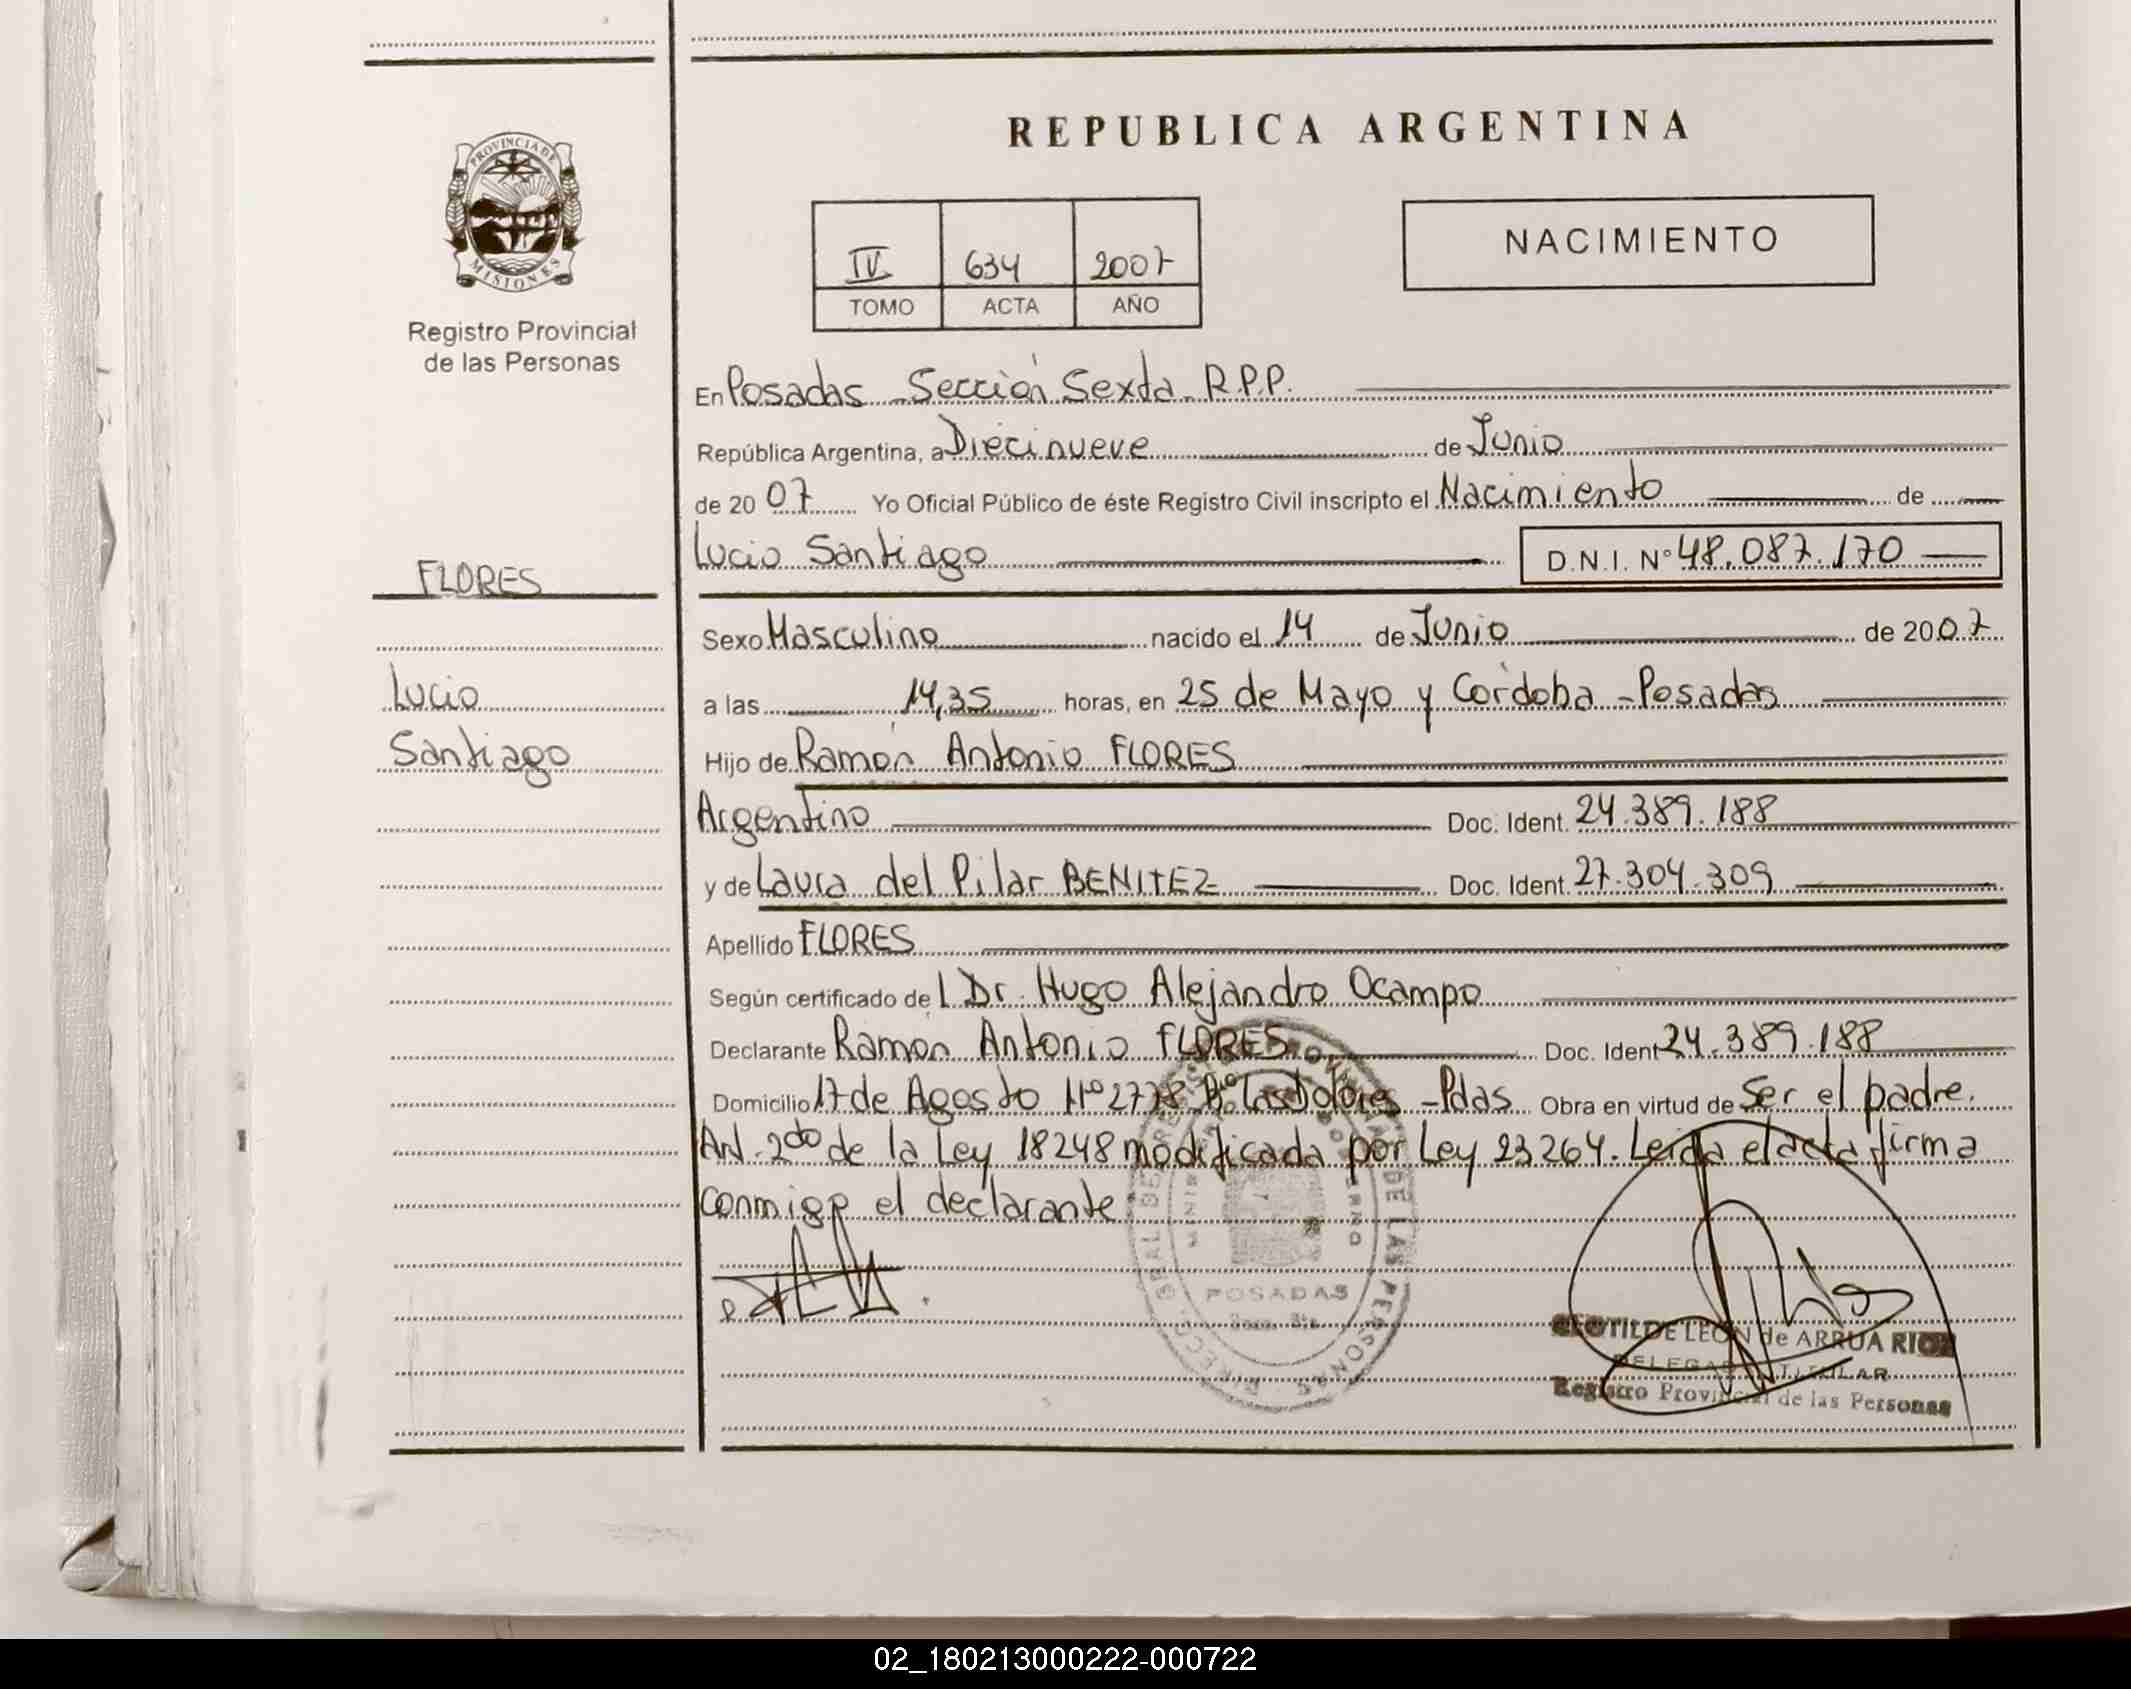 REPUBLICA ARGENTINA
PROVINCIA DE
MISIONES
Registro Provincial
de las Personas
IV 634 2007
TOMO ACTA AÑO
NACIMIENTO
En Posadas - Sección Sexta - R.P.P.
República Argentina, a Diecinueve de Junio
de 2007 Yo Oficial Público de éste Registro Civil inscripto el Nacimiento de
Lucio Santiago D.N.I. N° 48.087.170
FLORES
Lucio
Santiago
Sexo Masculino nacido el 14 de Junio de 2007
a las 14,35 horas, en 25 de Mayo y Córdoba - Posadas
Hijo de Ramón Antonio FLORES
Argentino Doc. Ident. 24.389.188
y de Laura del Pilar BENITEZ Doc. Ident. 27.304.309
Apellido FLORES
Según certificado de l Dr. Hugo Alejandro Ocampo
Declarante Ramón Antonio FLORES Doc. Ident 24.389.188
Domicilio 17 de Agosto Nº 2778 Bº Las Dolores - Pdas Obra en virtud de Ser el padre.
Art. 2do de la Ley 18248 modificada por Ley 23264. Leida el acta firma
conmigo el declarante
DE LAS PERSONAS
POSADAS
CLOTILDE LEON de ARRUA RIOS
DELEGADA TITULAR
Registro Provincial de las Personas
02_180213000222-000722